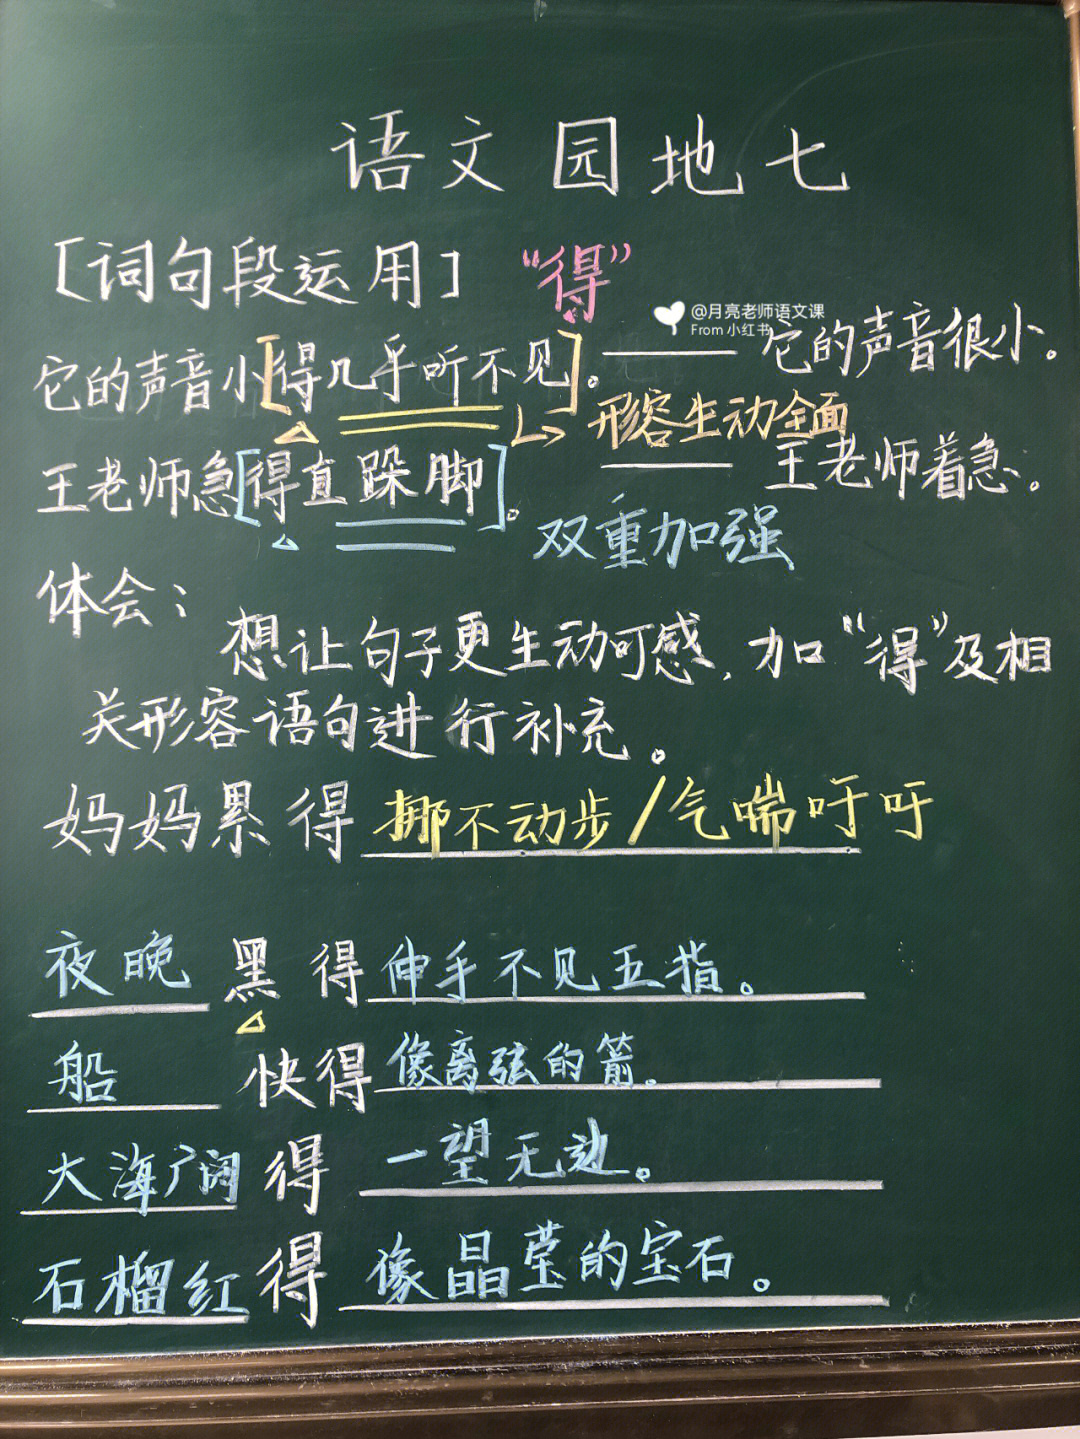 语文园地七
［词句段运用］ “得”
@月亮老师语文课
From 小红书
它的声音小[得几乎听不见]。——它的声音很小。
形容生动全面
王老师急[得直跺脚]。——王老师着急。
双重加强
体会：
想让句子更生动可感，加“得”及相
关形容语句进行补充。
妈妈累得挪不动步/气喘吁吁
夜晚黑得伸手不见五指。
船快得像离弦的箭。
大海广阔得一望无边。
石榴红得像晶莹的宝石。